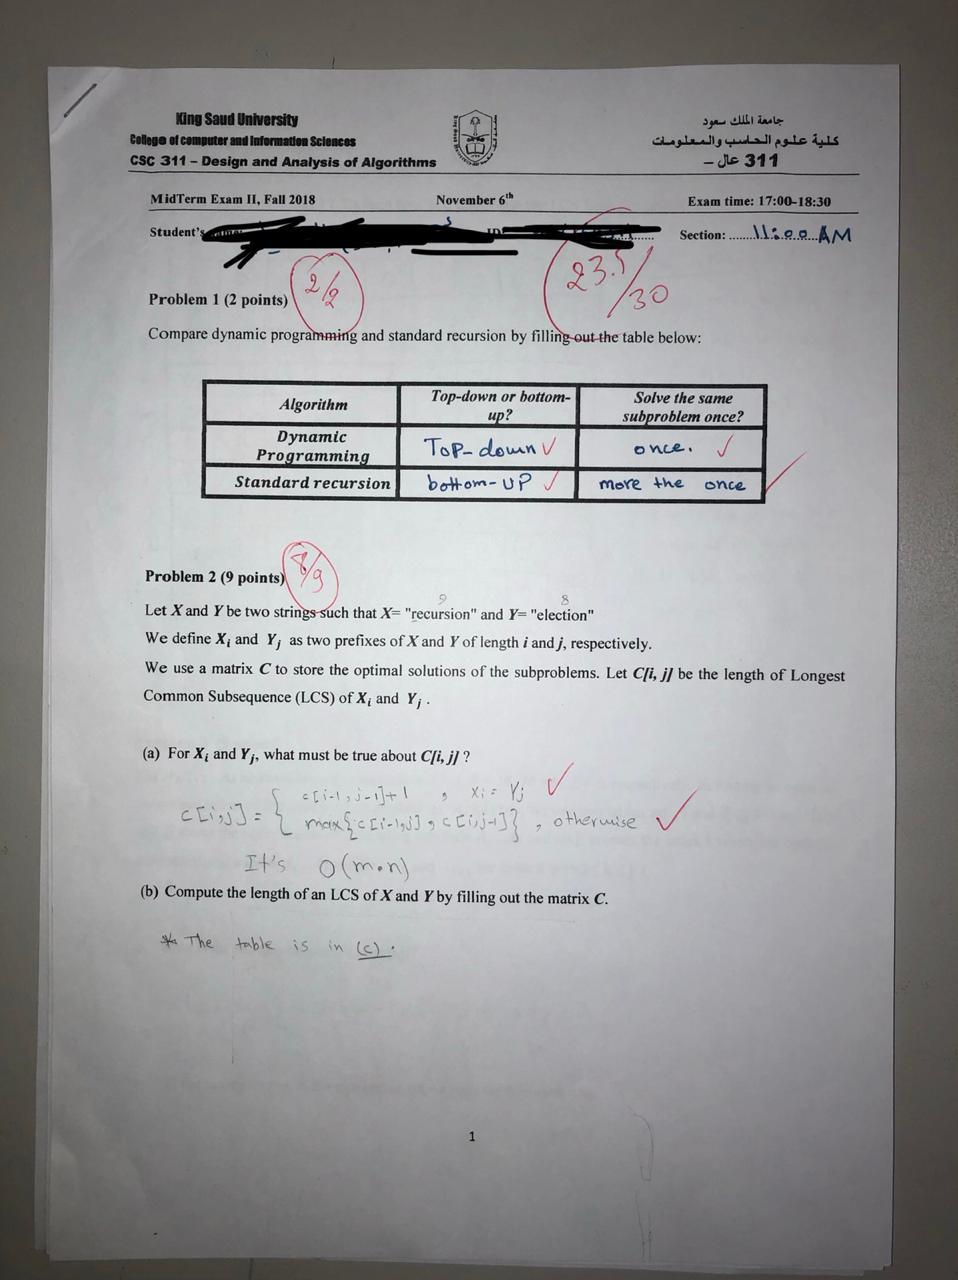 King Saud University
College of computer and Information Sciences
CSC 311 – Design and Analysis of Algorithms
جامعة الملك سعود
كلية علوم الحاسب والمعلومات
311 عال –
MidTerm Exam II, Fall 2018 November 6th Exam time: 17:00-18:30
Student's ID: Section: 11:00 AM
23.5/30
Problem 1 (2 points) 2/2
Compare dynamic programming and standard recursion by filling out the table below:
Algorithm Top-down or bottom-up? Solve the same subproblem once?
Dynamic Programming Top-down once.
Standard recursion bottom-up more the once
Problem 2 (9 points) 8/9
9 8
Let X and Y be two strings such that X= "recursion" and Y= "election"
We define Xi and Yj as two prefixes of X and Y of length i and j, respectively.
We use a matrix C to store the optimal solutions of the subproblems. Let C[i, j] be the length of Longest
Common Subsequence (LCS) of Xi and Yj .
(a) For Xi and Yj, what must be true about C[i, j] ?
c[i-1,j-1]+1 , xi = Yj
c[i,j] = { max{c[i-1,j], c[i,j-1]} , otherwise
It's O(m.n)
(b) Compute the length of an LCS of X and Y by filling out the matrix C.
* The table is in (c).
1